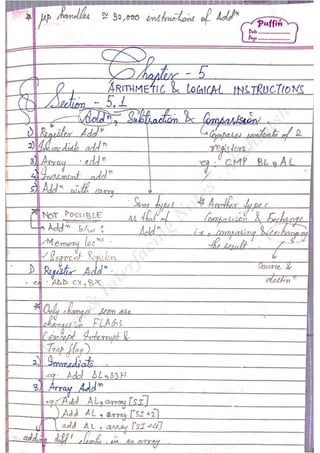 * μp handles ≅ 32,000 instructions of Addⁿ
Puffin
Date
Page
Chapter - 5
ARITHMETIC & LOGICAL INSTRUCTIONS
Section - 5.1
Addⁿ, Subtraction & Comparision
1) Register Addⁿ
2) Immediate addⁿ
3) Array addⁿ
4) Increment addⁿ
5) Addⁿ with carry
Compares contents of 2
registers.
eg: CMP BL, AL
Same types
as that of
Addⁿ
* Another types
Comparision & Exchange
i.e, comparing & exchanging
the result
source &
destinⁿ
* NOT POSSIBLE
Addⁿ b/w :
Memory locⁿs
Segment Register
1) Register Addⁿ
eg: ADD CX, BX
* Only changes seen are
changes in FLAGS
(except Interrupt &
Trap flag)
2) Immediate
eg: Add DL, 33H
3) Array Addⁿ
eg: Add AL, array [SI]
Add AL, array [SI+2]
add AL, array [SI+4]
adding diff elmts in an array
& Interfacing Notes